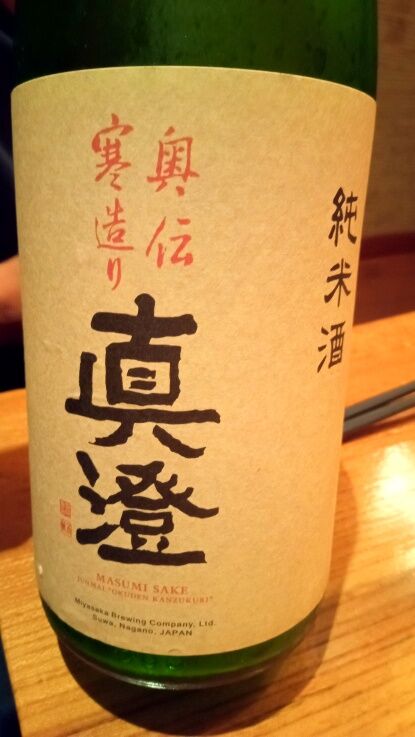 純米酒
奥伝
寒造り
真澄
MASUMI SAKE
JUNMAI "OKUDEN KANZUKURI"
Miyasaka Brewing Company, Ltd.
Suwa, Nagano, JAPAN